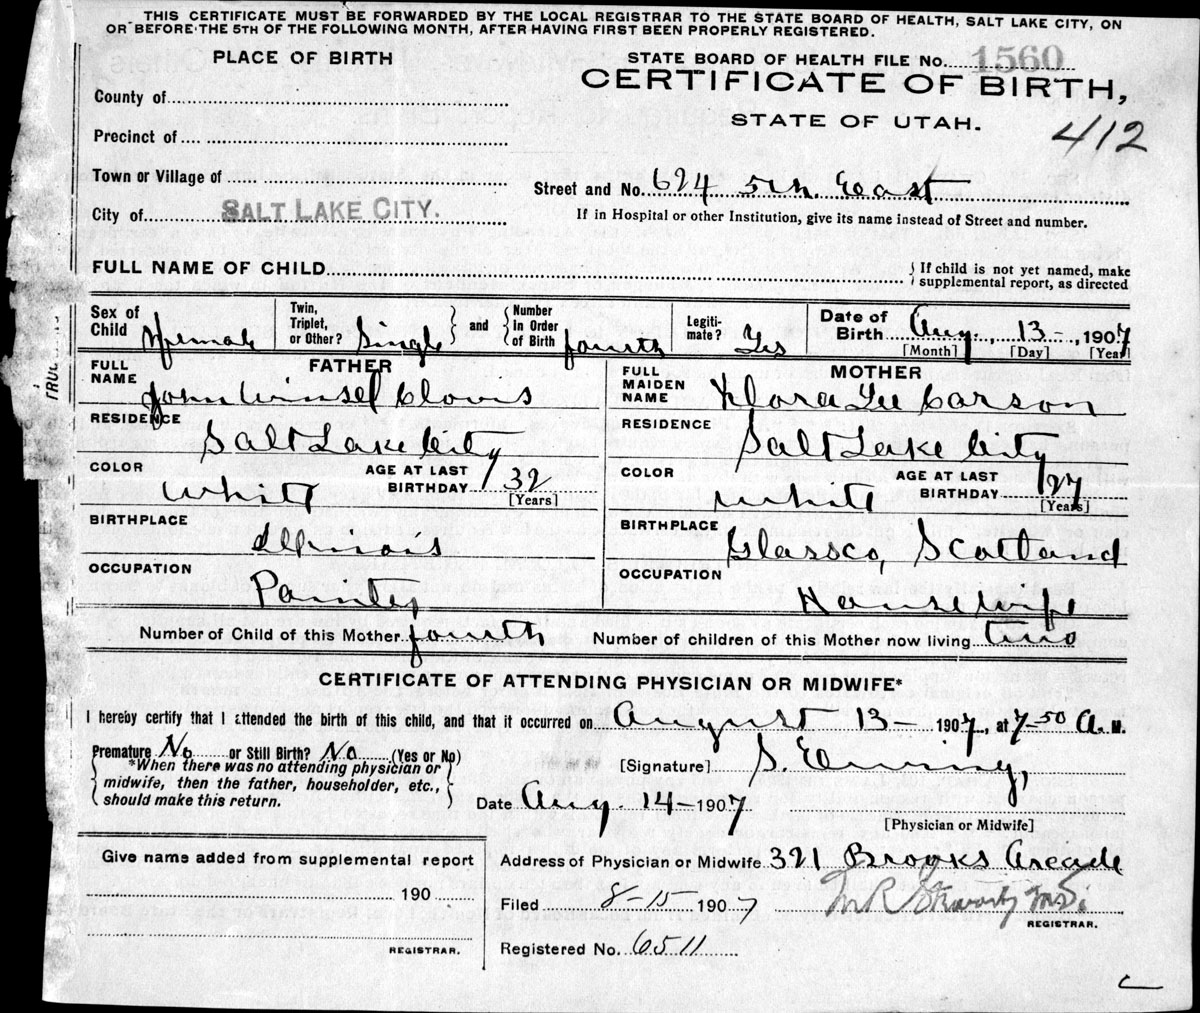 THIS CERTIFICATE MUST BE FORWARDED BY THE LOCAL REGISTRAR TO THE STATE BOARD OF HEALTH, SALT LAKE CITY, ON
OR BEFORE THE 5TH OF THE FOLLOWING MONTH, AFTER HAVING FIRST BEEN PROPERLY REGISTERED.
PLACE OF BIRTH
STATE BOARD OF HEALTH FILE No. 1560
CERTIFICATE OF BIRTH,
STATE OF UTAH.
412
County of
Precinct of
Town or Village of
Street and No. 624 5th. East
City of SALT LAKE CITY.
If in Hospital or other Institution, give its name instead of Street and number.
FULL NAME OF CHILD
{ If child is not yet named, make
supplemental report, as directed
Sex of Child Female
Twin, Triplet, or Other? Single
and
Number In Order of Birth fourth
Legiti-mate? Yes
Date of Birth Aug., 13-, 1907
[Month] [Day] [Year]
FATHER
FULL NAME John Winsel Clovis
RESIDENCE Salt Lake City
COLOR White
AGE AT LAST BIRTHDAY 32
[Years]
BIRTHPLACE Illinois
OCCUPATION Painter
MOTHER
FULL MAIDEN NAME Flora Lee Carson
RESIDENCE Salt Lake City
COLOR White
AGE AT LAST BIRTHDAY 27
[Years]
BIRTHPLACE Glassco, Scotland
OCCUPATION Housewife
Number of Child of this Mother fourth Number of children of this Mother now living two
CERTIFICATE OF ATTENDING PHYSICIAN OR MIDWIFE*
I hereby certify that I attended the birth of this child, and that it occurred on August 13- 1907, at 7-50 A. M.
Premature No or Still Birth? No (Yes or No)
*When there was no attending physician or
midwife, then the father, householder, etc.,
should make this return.
[Signature] S. Ewing,
Date Aug. 14-1907
[Physician or Midwife]
Give name added from supplemental report
190
REGISTRAR.
Address of Physician or Midwife 321 Brooks Arcade
Filed 8-15-1907
M.D.
REGISTRAR.
Registered No. 6511